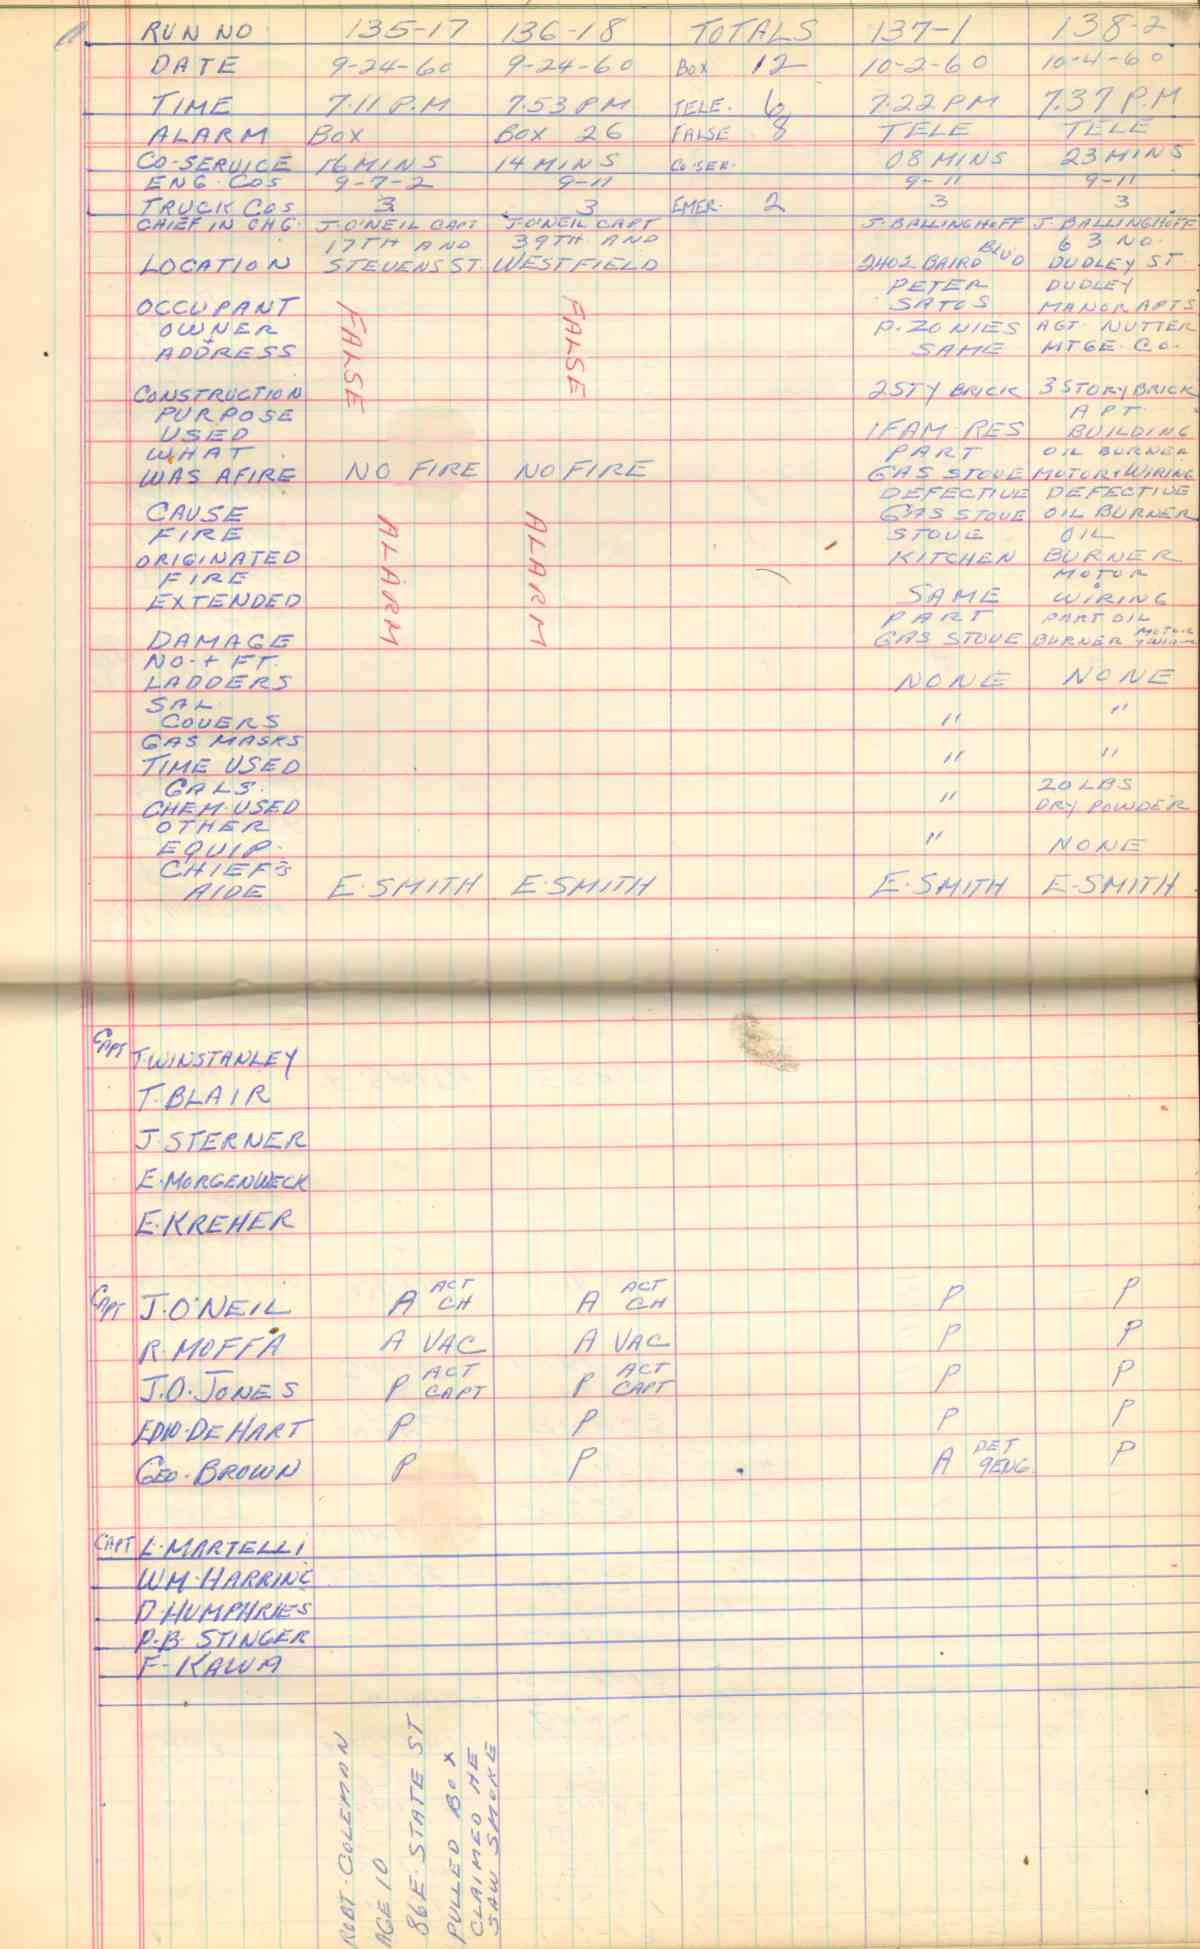 RUN NO. 135-17 136-18 TOTALS 137-1 138-2
DATE 9-24-60 9-24-60 BOX 12 10-2-60 10-4-60
TIME 7.11 P.M 7.53 PM TELE. 6 7.22 PM 7.37 P.M
ALARM BOX BOX 26 FALSE 8 TELE TELE
CO-SERVICE 16 MINS 14 MINS CO SER. 08 MINS 23 MINS
ENG. COS 9-7-2 9-11 9-11 9-11
TRUCK COS 3 3 EMER. 2 3 3
CHIEF IN CHG. J. O'NEIL CAPT J. O'NEIL CAPT J. BALLINGHOFF J. BALLINGHOFF
17TH AND 39TH AND BLVD 63 NO.
LOCATION STEVENS ST. WESTFIELD 2402 BAIRD DUDLEY ST
PETER DUDLEY
OCCUPANT SATOS MANOR APTS
OWNER P. ZONIES AGT. NUTTER
ADDRESS SAME MTGE. CO.
FALSE FALSE
CONSTRUCTION 2 STY BRICK 3 STORY BRICK
PURPOSE APT.
USED 1 FAM. RES BUILDING
WHAT PART OIL BURNER
WAS AFIRE NO FIRE NO FIRE GAS STOVE MOTOR & WIRING
DEFECTIVE DEFECTIVE
CAUSE GAS STOVE OIL BURNER
FIRE STOVE OIL
ORIGINATED KITCHEN BURNER
FIRE MOTOR
EXTENDED SAME WIRING
ALARM ALARM
PART PART OIL
DAMAGE GAS STOVE BURNER MOTOR
NO. + FT.
LADDERS NONE NONE
SAL
COVERS " "
GAS MASKS
TIME USED " "
GALS. 20 LBS
CHEM. USED " DRY POWDER
OTHER
EQUIP. " NONE
CHIEF'S
AIDE E. SMITH E. SMITH E. SMITH E-SMITH
CAPT T. WINSTANLEY
T. BLAIR
J. STERNER
E. MORGENWECK
E. KREHER
CAPT J. O'NEIL A ACT CH A ACT CH P P
R. MOFFA A VAC A VAC P P
J. O. JONES P ACT CAPT P ACT CAPT P P
EDW. DE HART P P P P
GEO. BROWN P P A DET 9 ENG. P
CAPT L. MARTELLI
WM. HARRING
D. HUMPHRIES
P. B. STINGER
F- KAWA
ROBT. COLEMAN
AGE 10
86 E. STATE ST
PULLED BOX
CLAIMED HE
SAW SMOKE